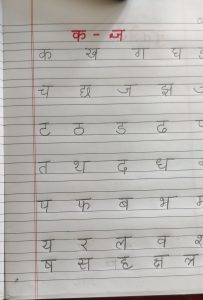 क - ज्ञ
क ख ग घ
च छ ज झ
ट ठ ड ढ
त थ द ध
प फ ब भ म
य र ल व श
ष स ह क्ष त्र